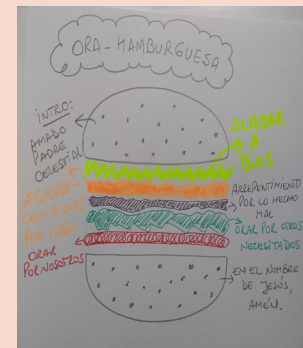 ORA-HAMBURGUESA
INTRO:
AMADO
PADRE
CELESTIAL
ALABAR
A
DIOS
AGRADE-
CER A DIOS
POR TODO
ARREPENTIMIENTO
POR LO HECHO
MAL
ORAR POR OTROS
NECESITADOS
ORAR
POR NOSOTROS
EN EL NOMBRE
DE JESÚS,
AMÉN.